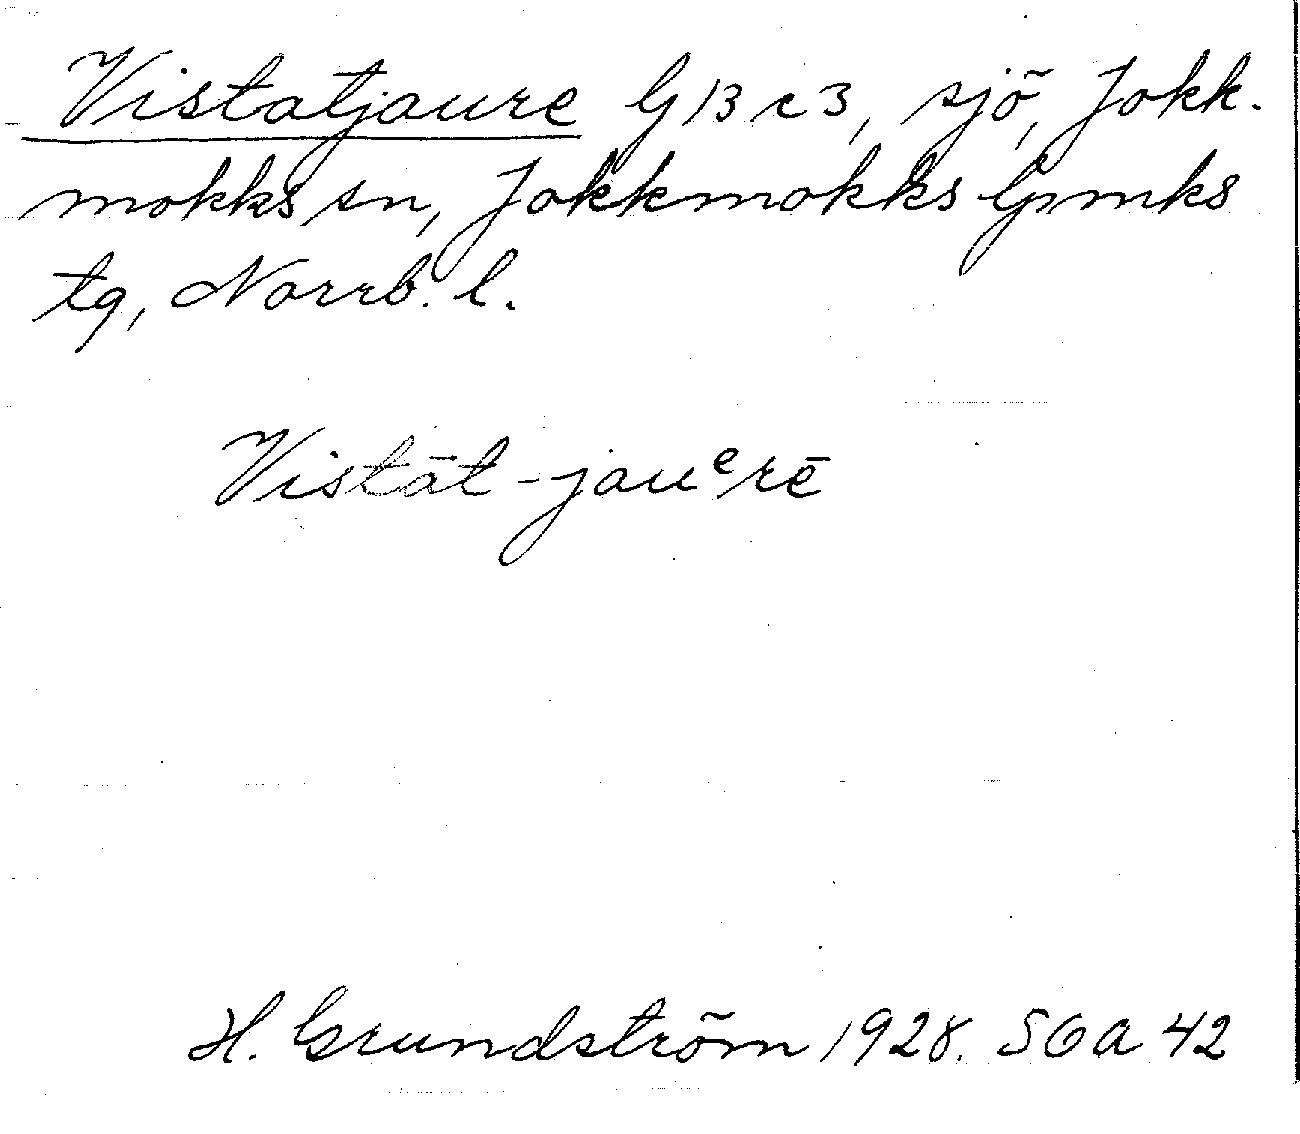 Vistatjaure G 13 c 3, sjö, Jokk-
mokks sn, Jokkmokks lpmks
tg, Norrb. l.
Vistāt-jauᵉrē
H. Grundström 1928. SOA 42